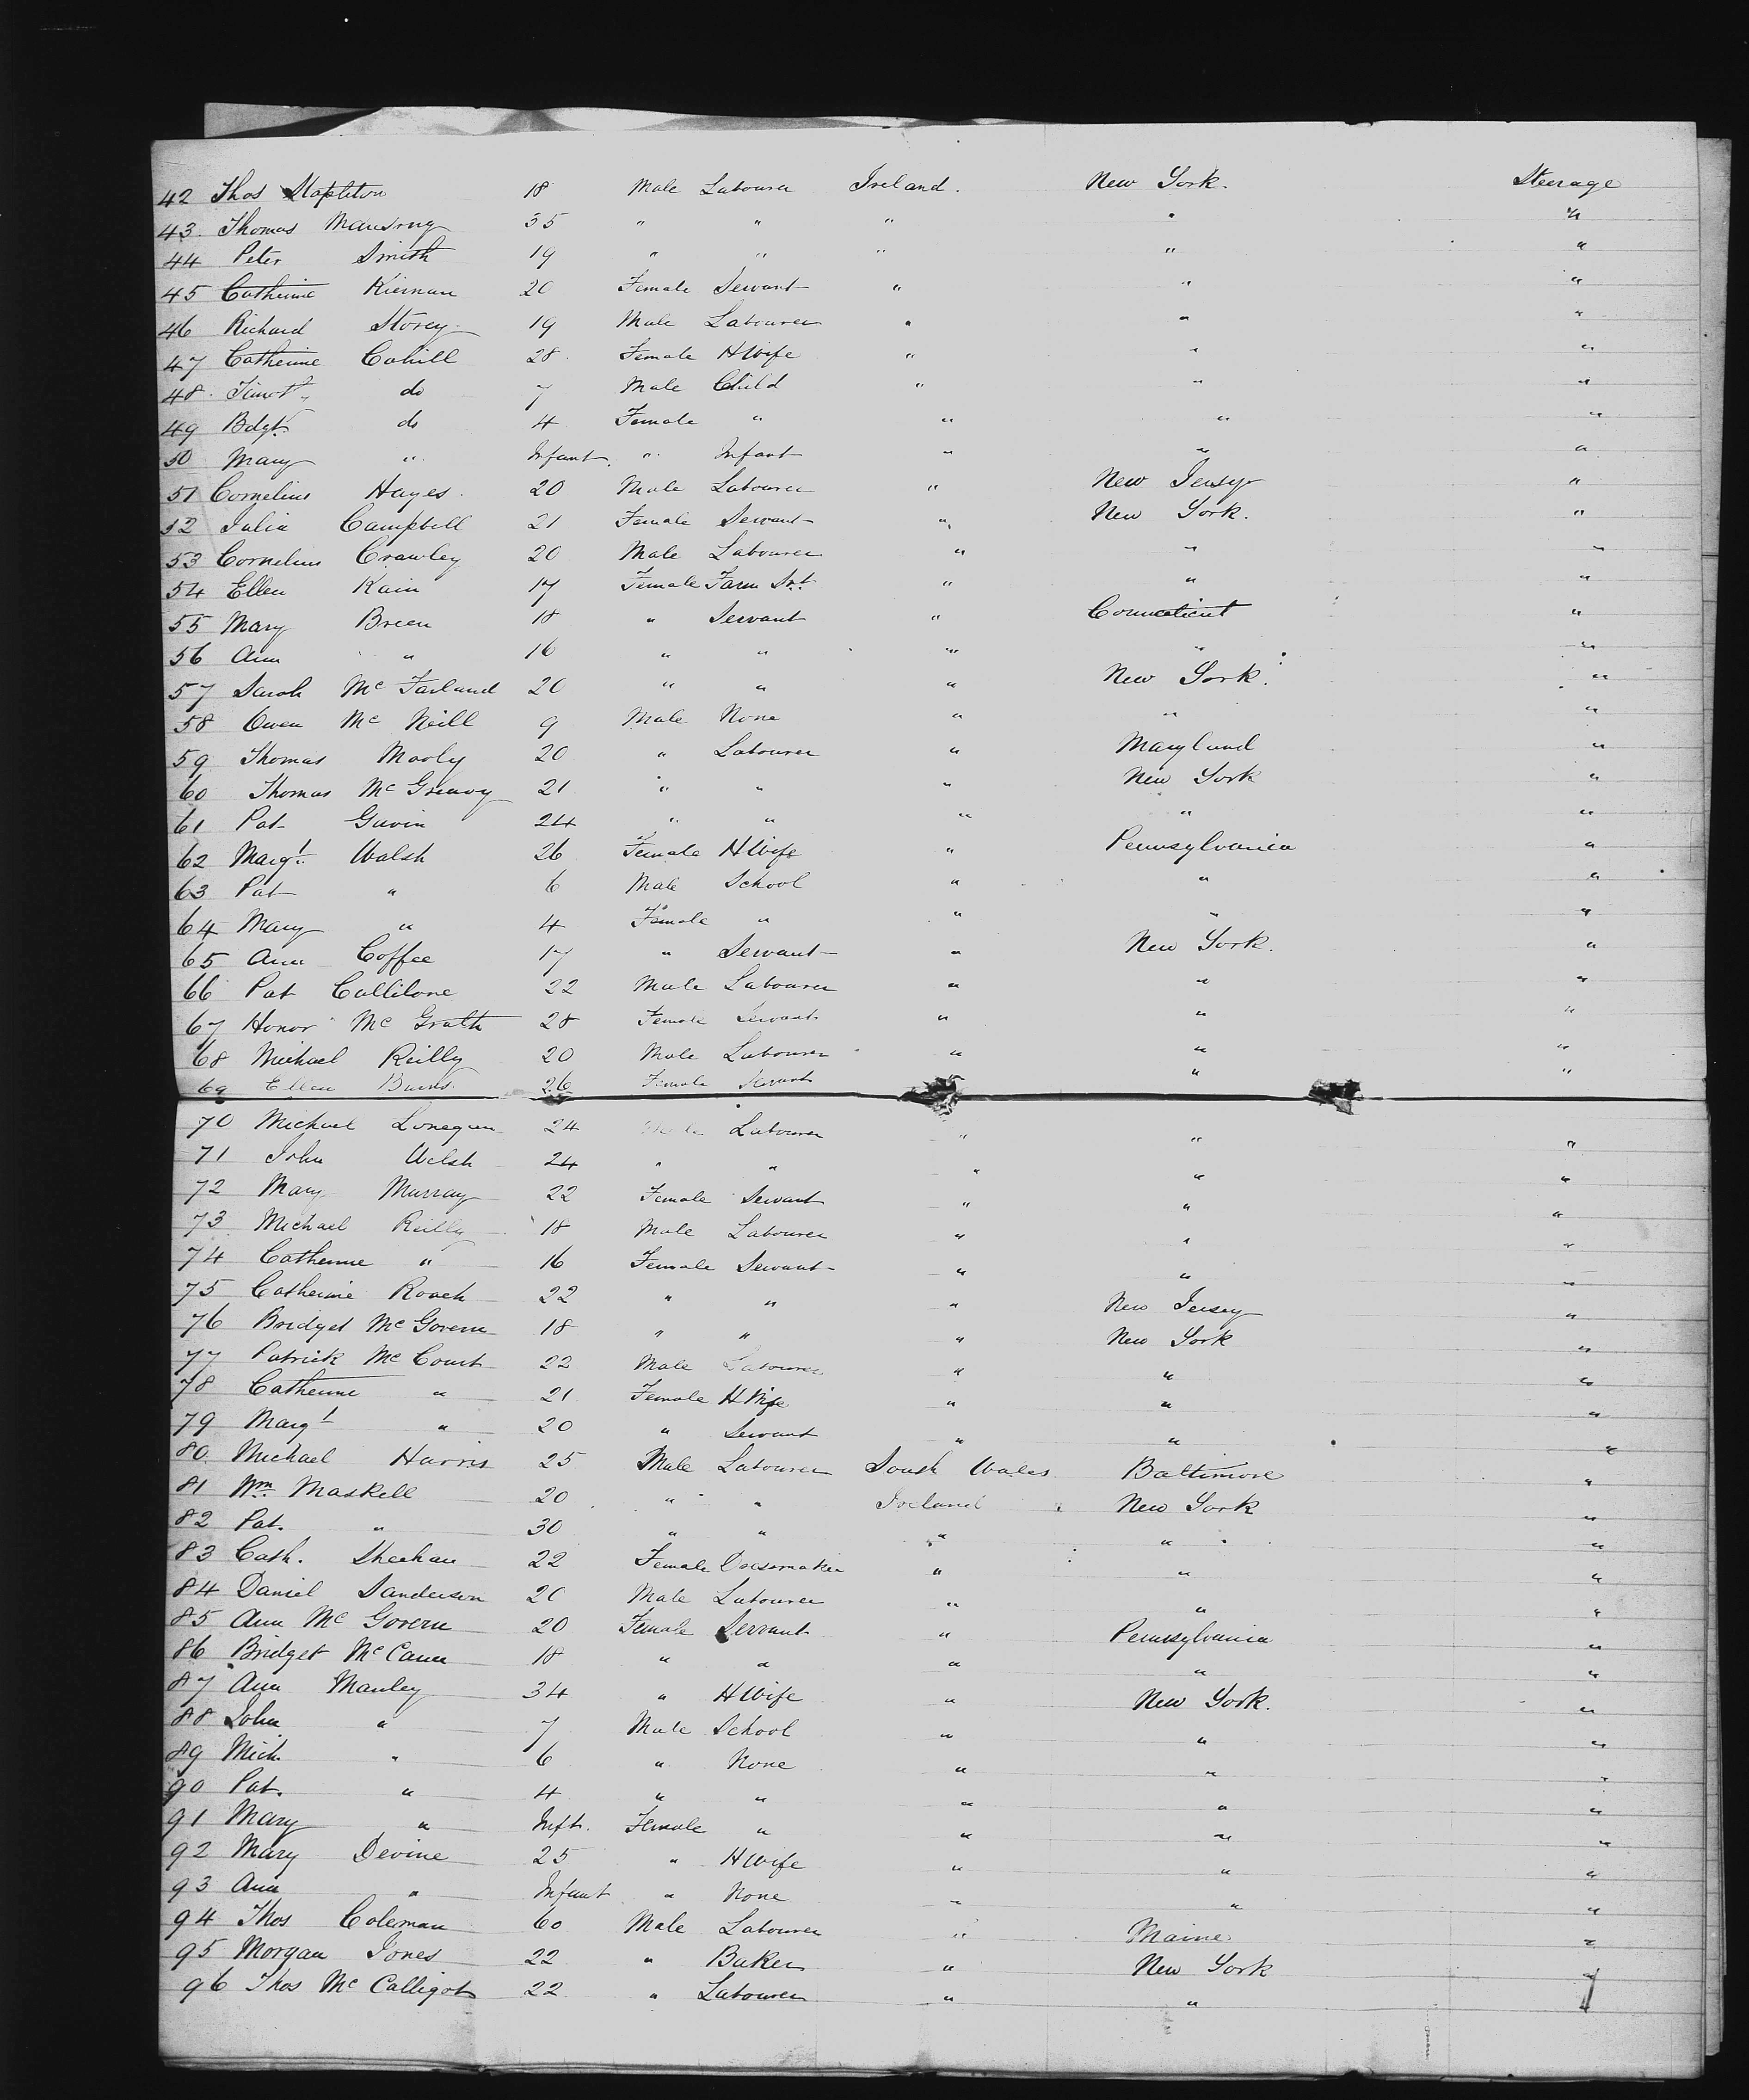 42 Thos Stapleton 18 Male Labourer Ireland. New York. Steerage
43. Thomas 35 " " " " "
44 Peter Smith 19 " " " " "
45 Catherine Kiernan 20 Female Servant " " "
46 Richard Storey 19 Male Labourer " " "
47 Catherine Cahill 28 Female HWife " " "
48. Timothy do 7 Male Child " " "
49 Bdgt. do 4 Female " " " "
50 Mary " Infant. " Infant " " "
51 Cornelius Hayes. 20 Male Labourer " New Jersey "
52 Julia Campbell 21 Female Servant " New York. "
53 Cornelius Crawley 20 Male Labourer " " "
54 Ellen Kain 17 Female Farm Svt. " " "
55 Mary Breen 18 " Servant " Conneticut "
56 Ann " 16 " " " " "
57 Sarah Mc Farland 20 " " " New York. "
58 Owen Mc Neill 9 Male None " " "
59 Thomas Mooly 20 " Labourer " Maryland "
60 Thomas Mc Greavy 21 " " " New York "
61 Pat Gavin 24 " " " " "
62 Margt. Walsh 26 Female HWife " Pennsylvania "
63 Pat " 6 Male School " " "
64 Mary " 4 Female " " " "
65 Ann Coffee 17 " Servant " New York. "
66 Pat 22 Male Labourer " " "
67 Honor Mc Grath 28 Female Servant " " "
68 Michael Reilly 20 Male Labourer " " "
69 Ellen Burns. 26 Female Servant " " "
70 Michael Lonegan 24 Male Labourer " " "
71 John Welsh 24 " " " " "
72 Mary Murray 22 Female Servant " " "
73. Michael Reilly 18 Male Labourer " " "
74 Catherine " 16 Female Servant " " "
75 Catherine Roach 22 " " " New Jersey "
76 Bridget McGovern 18 " " " New York "
77 Patrick McCourt 22 Male Labourer " " "
78 Catherine " 21 Female HWife " " "
79 Margt " 20 " Servant " " "
80. Michael Harris 25 Male Labourer South Wales Baltimore "
81 Wm. Maskell 20 " " Ireland New York "
82 Pat. " 30 " " " " "
83 Cath. Sheehan 22 Female Dressmaker " " "
84 Daniel Sanderson 20 Male Labourer " " "
85 Ann Mc Govern 20 Female Servant " Pennsylvania "
86 Bridget McCann 18 " " " " "
87 Ann Manley 34 " HWife " New York. "
88 John " 7 Male School " " "
89 Mich. " 6 " None " " "
90 Pat. " 4 " " " " "
91 Mary " Inft. Female " " " "
92 Mary Devine 25 " HWife " " "
93 Ann " Infant " None " " "
94 Thos Coleman 60 Male Labourer " Maine "
95 Morgan Jones 22 " Baker " New York "
96 Thos Mc Calligot 22 " Labourer " " "